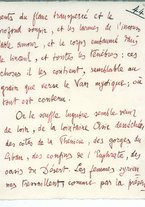 44
ments du flanc transpercé et le
profond soupir, et les larmes de l'inconso
lable amour, et le corps embaumé
le linceul, et toutes les ténèbres; ces
choses il les contient, semblable au
grain que verse le Van mystique; où
tout est contenu.
Or le souffle lugubre semble venir
de loin, de la lointaine Asie desséchée
des côtes de la Phénicie, des gorges du
Liban, des confins de l'Euphrate, des
oasis du Désert. Les femmes syriennes
tressaillent comme par la présence